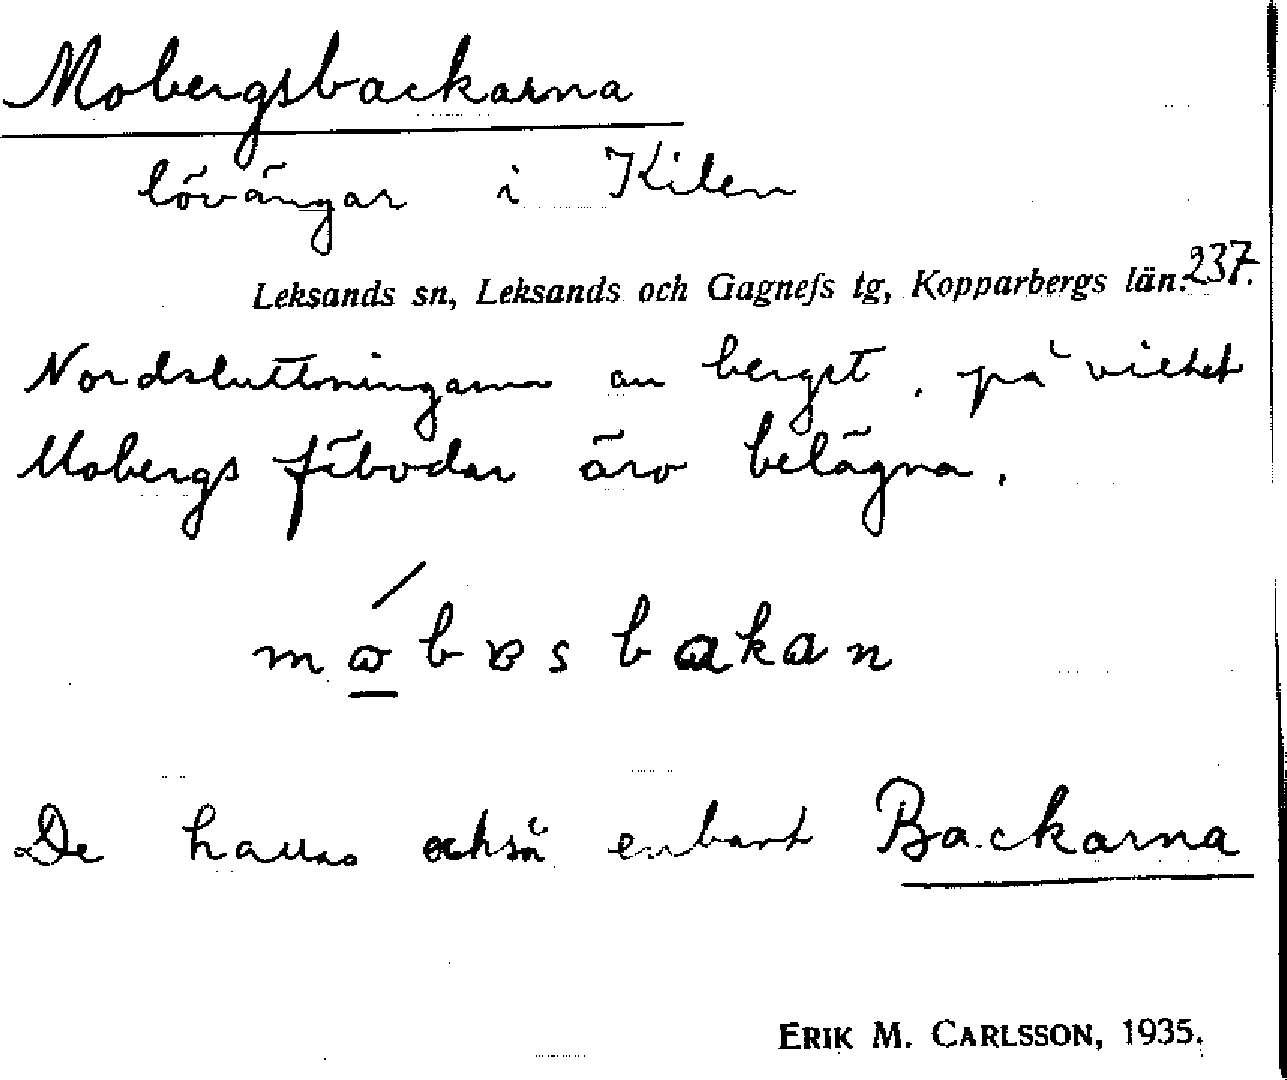 Mobergsbackarna
lövängar i Kilen
Leksands sn, Leksands och Gagnefs tg, Kopparbergs län. 237.
Nordsluttningarna av bergst, på vilket
Mobergs fäbodar äro belägna.
De kallas också enbart Backarna
ERIK M. CARLSSON, 1935.